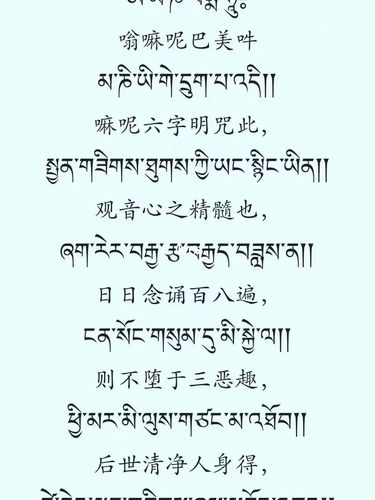 翁嘛呢巴美吽
མ་ཎི་ཡི་གེ་དྲུག་པ་འདི།།
嘛呢六字明咒此，
སྤྱན་གཟིགས་ཐུགས་ཀྱི་ཡང་སྙིང་ཡིན།།
观音心之精髓也，
ཞག་རེར་བརྒྱ་རྩ་བརྒྱད་བཟླས་ན།།
日日念诵百八遍，
ངན་སོང་གསུམ་དུ་མི་སྐྱེ་ལ།།
则不堕于三恶趣，
ཕྱི་མར་མི་ལུས་གཙང་མ་འཐོབ།།
后世清净人身得，